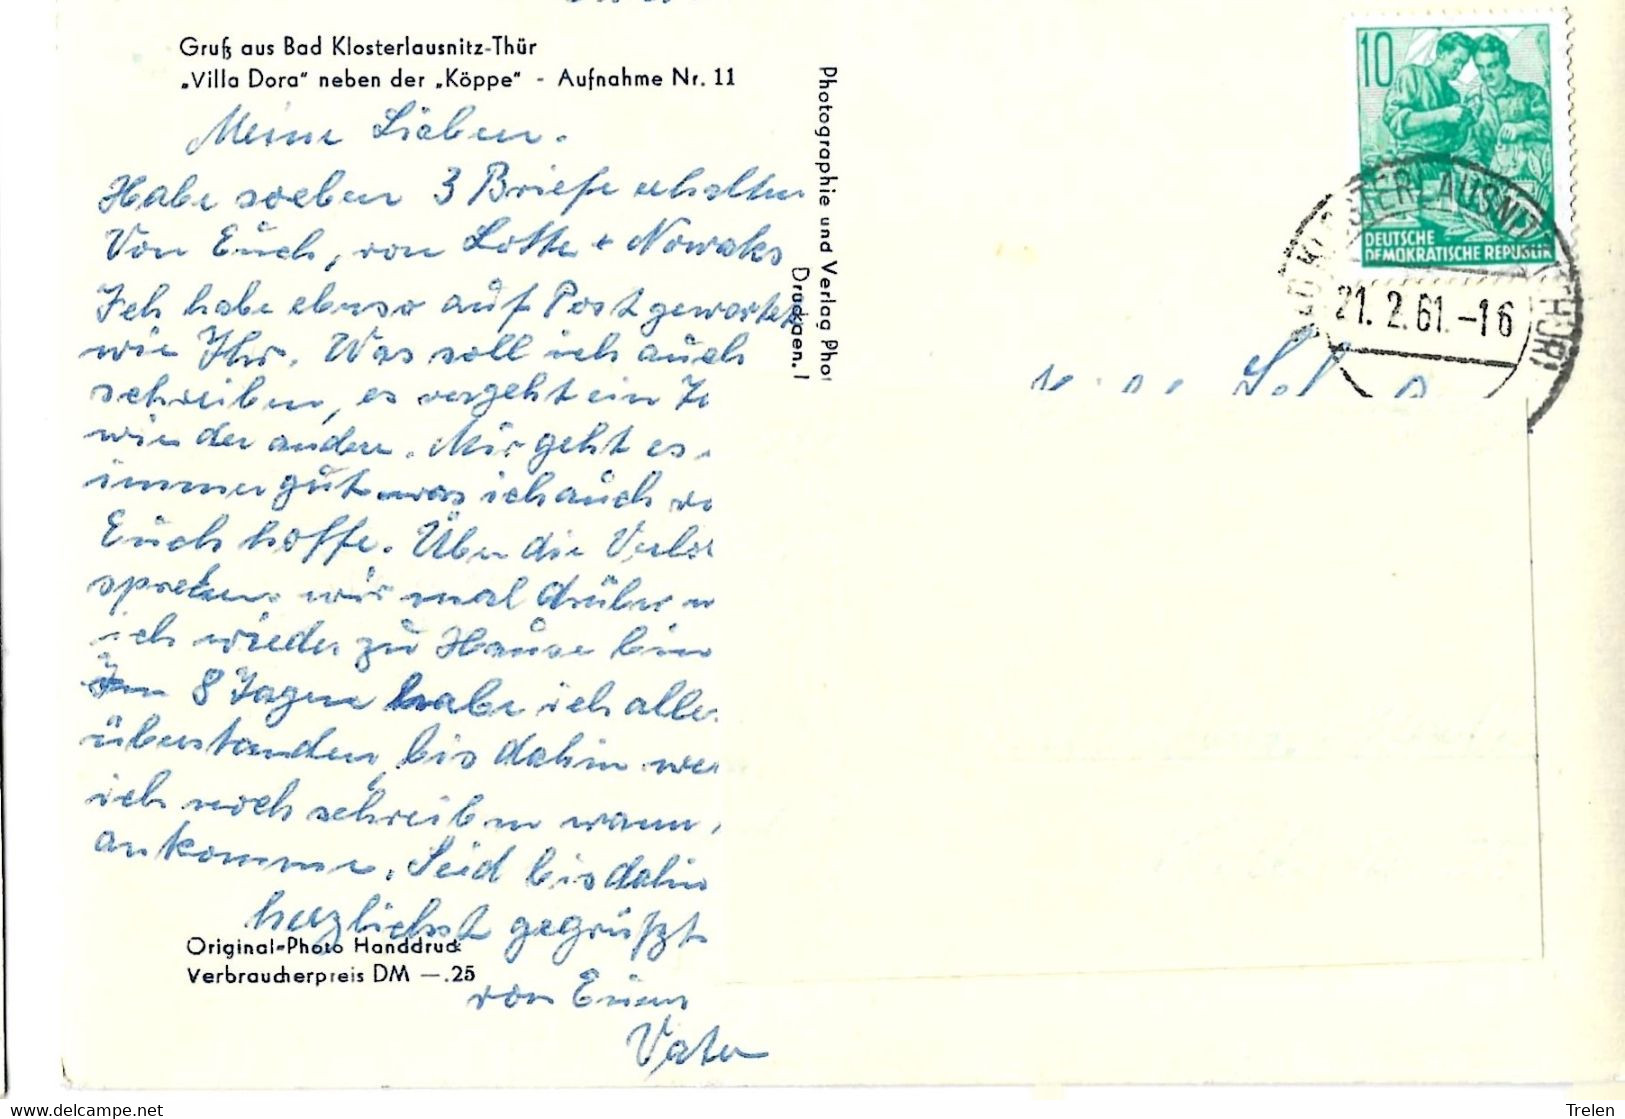 Gruß aus Bad Klosterlausnitz-Thür
„Villa Dora" neben der „Köppe" - Aufnahme Nr. 11
Meine Lieben.
Habe soeben 3 Briefe erhalten
Von Euch, von Lotte + Nowaks
Ich habe ebenso auf Post gewartet
wie Ihr. Was soll ich auch
schreiben, es vergeht ein T
wie der andere. Mir geht es
immer gut was ich auch v
Euch hoffe. Über die Verlo
sprechen wir mal drüber w
ich wieder zu Hause bin
In 8 Tagen habe ich alle
überstanden, bis dahin wer
ich noch schreiben wann
ankomme. Seid bis dahin
herzlichst gegrüßt
von Euern
Vater
Original-Photo Handdruck
Verbraucherpreis DM —.25
Photographie und Verlag Phot
Druckgen. I
10
DEUTSCHE
DEMOKRATISCHE REPUBLIK
BAD KLOSTERLAUSNITZ (THÜR)
21.2.61.-16
Trelen